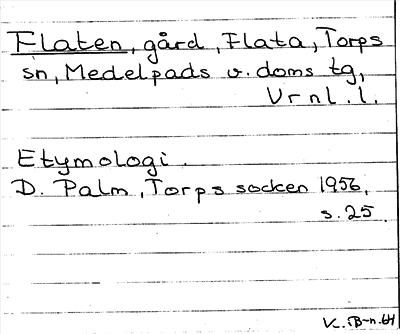 Flaten, gård, Flata, Torps
sn, Medelpads v. doms tg,
Vrnl. l.
Etymologi.
D. Palm, Torps socken 1956,
s. 25.